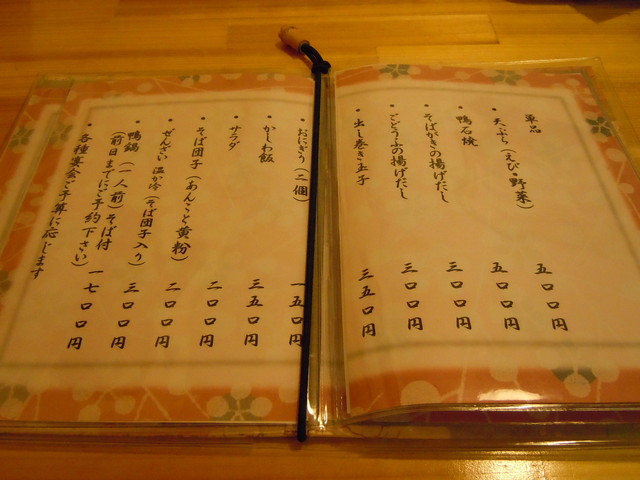 単品
・天ぷら(えび・野菜) 五〇〇円
・鴨石焼 五〇〇円
・そばがきの揚げだし 三〇〇円
・ごどうふの揚げだし 三〇〇円
・出し巻き玉子 三五〇円
・おにぎり(二個) 一五〇円
・かしわ飯 三五〇円
・サラダ 二〇〇円
・そば団子(あんこと黄粉) 二〇〇円
・ぜんざい 温か冷(そば団子入り) 三〇〇円
・鴨鍋(一人前)そば付 一七〇〇円
(前日までにご予約下さい)
・各種宴会ご予算に応じます